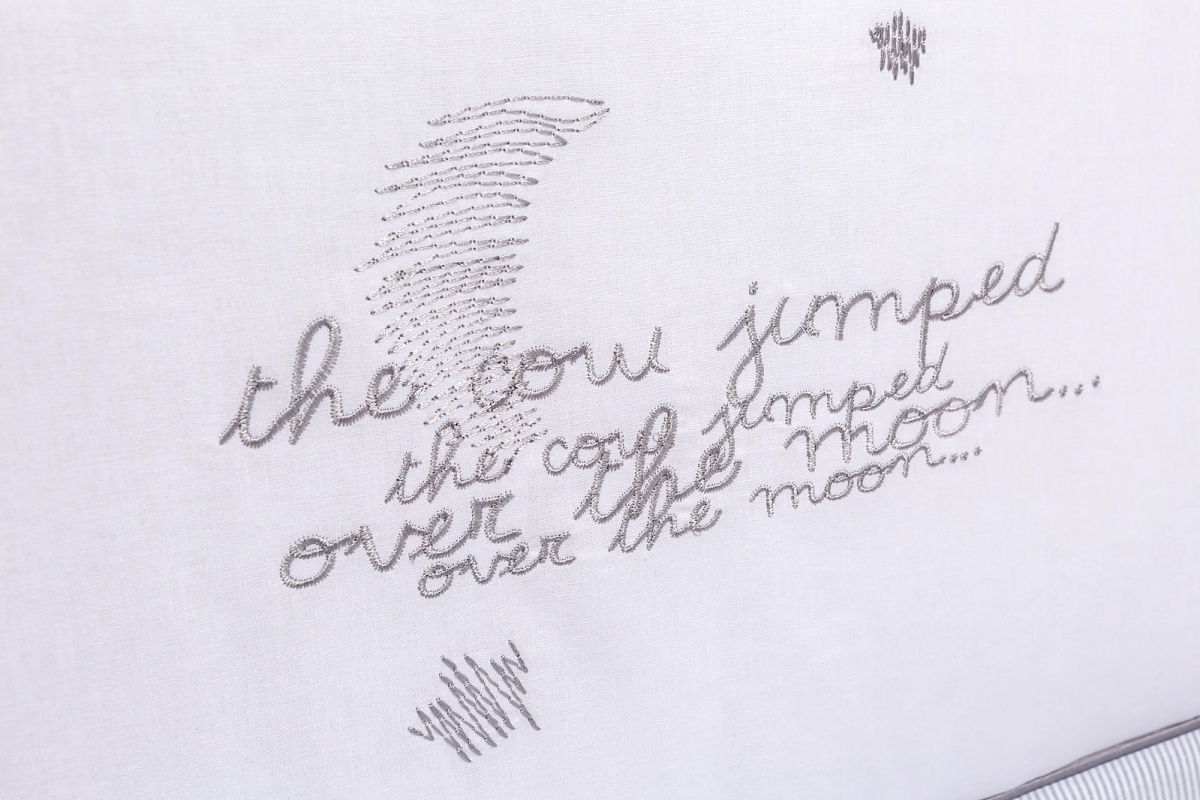 the cow jumped
the cow jumped
over the moon...
over the moon...